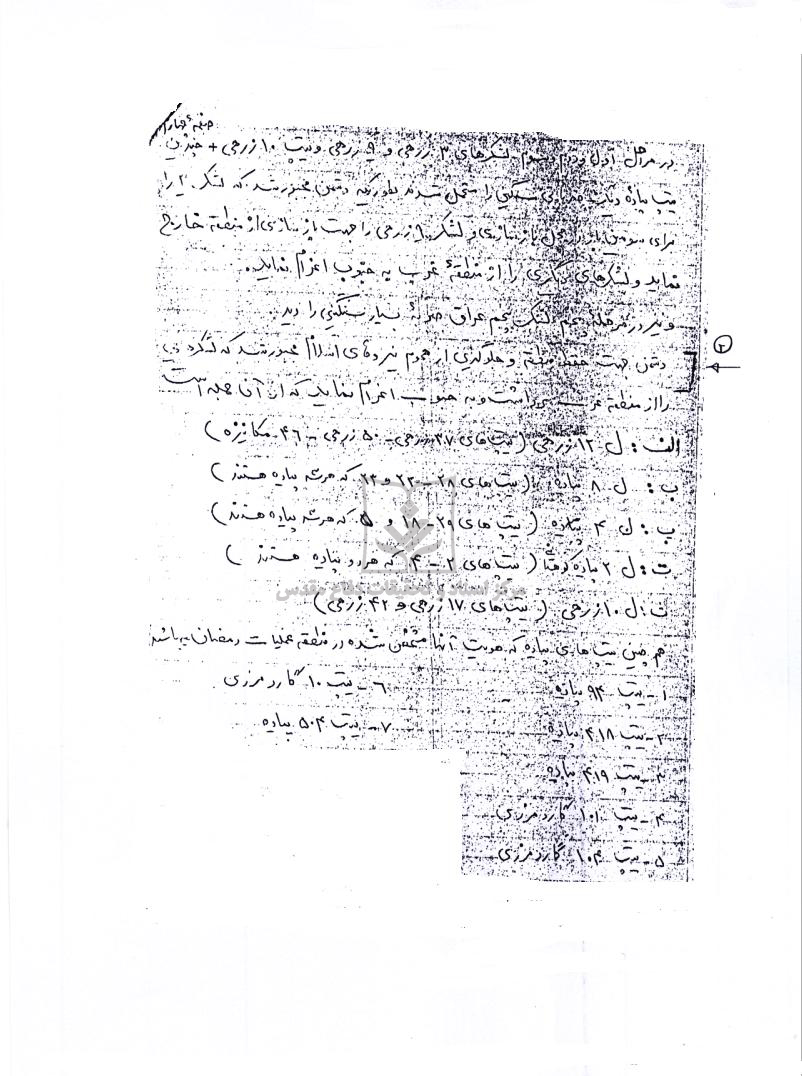 صفحهٔ چهارم
در مراحل اول و دوم و سوم لشکرهای ۳ زرهی و ۹ زرهی و تیپ ۱۰ زرهی + چندین
تیپ پیاده سنگینی را متحمل شدند بطوریکه دشمن مجبور شد که لشکر را
برای سومین بار بازسازی و لشکر ۹ زرهی را جهت بازسازی از منطقه خارج
نماید و لشکرهای دیگری را از منطقهٔ غرب به جنوب اعزام نماید.
و نیز در مرحله پنجم لشکر پنجم عراق ضربهٔ بسیار سنگینی را دید.
۲
دشمن جهت حفظ منطقه و جلوگیری از هجوم نیروهای اسلام مجبور شد که لشکر
را از منطقه غرب برداشت و به جنوب اعزام نماید که از آن جمله است
الف: ل ۱۲ زرهی (تیپ‌های ۳۷ زرهی - ۵۰ زرهی - ۴۶ مکانیزه)
ب: ل ۸ پیاده (تیپ‌های ۲۸ - ۲۳ و ۲۲ که هر سه پیاده هستند)
پ: ل ۴ پیاده (تیپ های ۲۹ - ۱۸ و ۵ که هر سه پیاده هستند)
ت: ل ۲ پیاده کوهستانی (تیپ‌های ۲ - ۴ که هر دو پیاده هستند)
ث: ل ۱۰ زرهی (تیپ‌های ۱۷ زرهی و ۴۲ زرهی)
هم چنین تیپ های پیاده که هویت آنها مشخص شده در منطقه عملیات رمضان میباشد
۱ - تیپ ۹۴ پیاده
۲ - تیپ ۴۱۸ پیاده
۳ - تیپ ۴۱۹ پیاده
۴ - تیپ ۱۰۱ گارد مرزی
۵ - تیپ ۱۰۴ گارد مرزی
۶ - تیپ ۱۰ گارد مرزی
۷ - تیپ ۵۰۴ پیاده
مرکز اسناد و تحقیقات دفاع مقدس